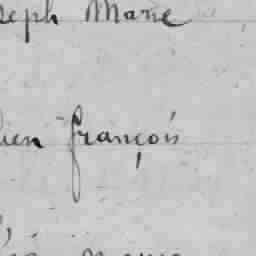 seph Marie
ien françois